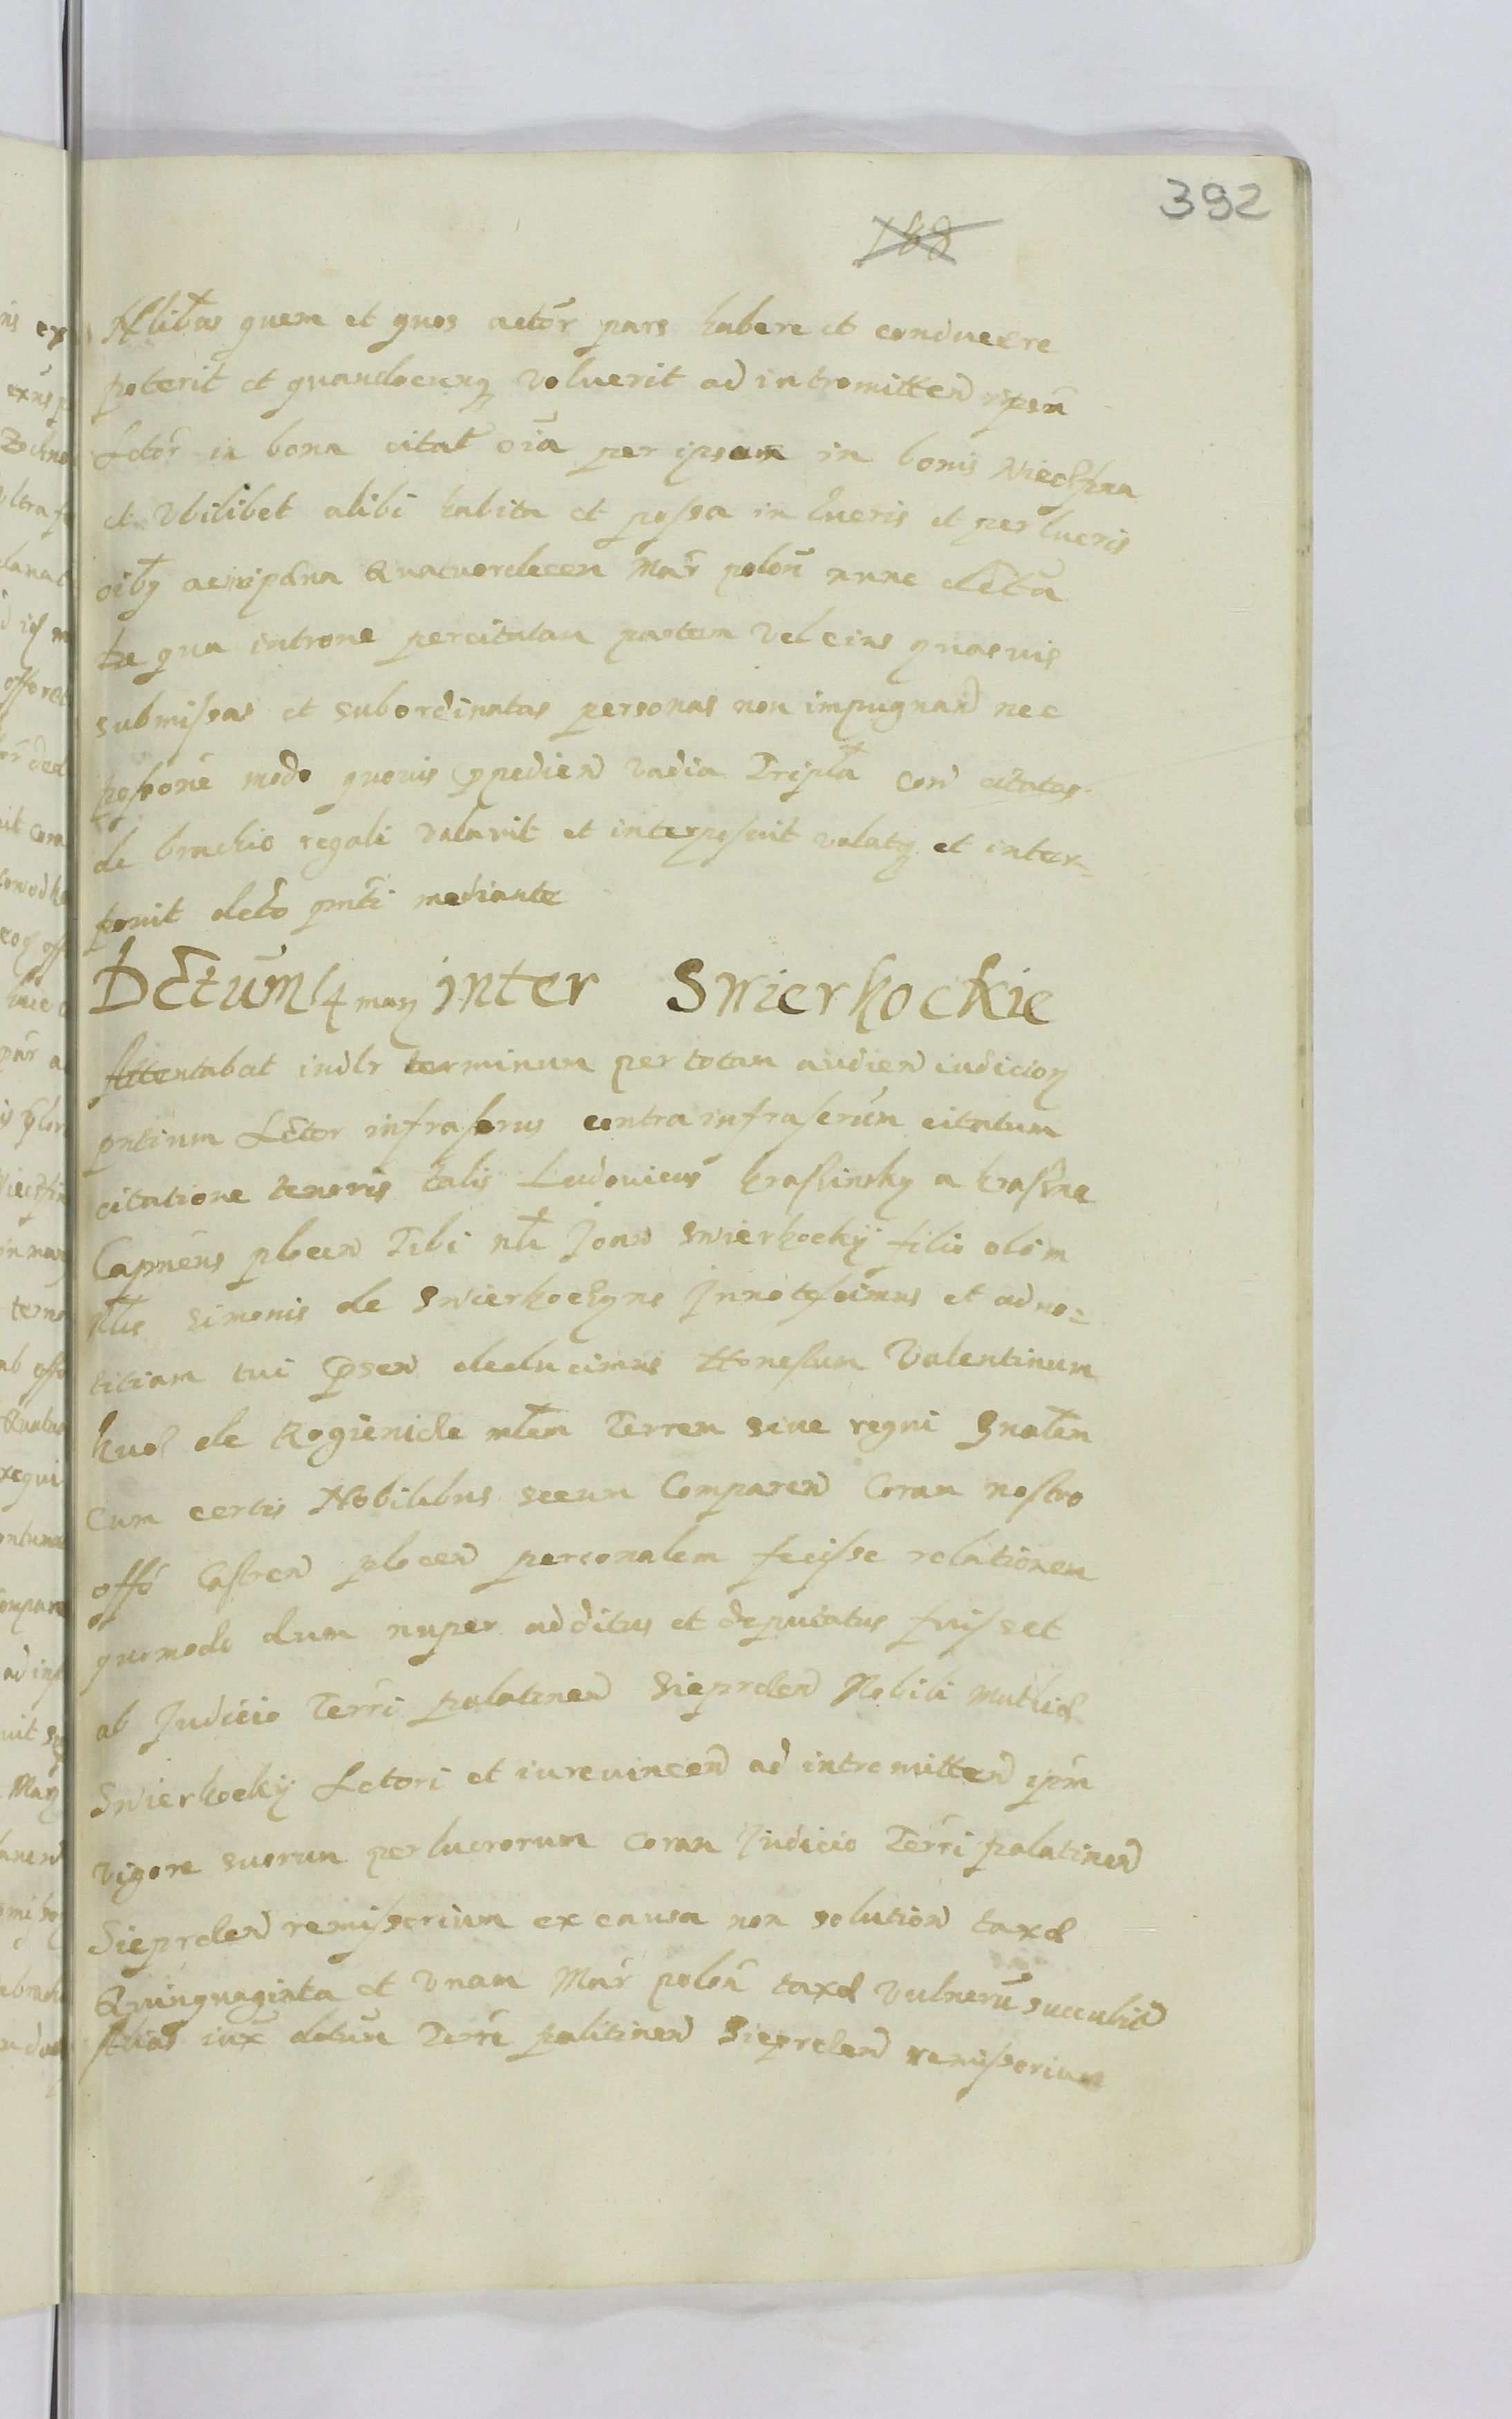 392
188
Nlibus quem et quos actor pars habere et conducere
poterit et quandocunq voluerit ad intromitten ipsu
Actor in bona citat oia per ipsum in bonis
et Vbilibet alibi habita et possa in lucris et perlucris
oibq Quatuordecem Mar polon nunc
de qua introne per citatam partem Vel eius quasuis
submissas et subordinatas personas non impugnand nec
possone modo quouis Impedien vadia Tripla con citatas
de brachio regali valauit et interposuit valatq et inter-
ponit decto pnti mediante
Dctum 14 marq inter Swierhockie
Attentabat indlr terminum per totam audien iudicioq
pntium Actor infrascrus contra infrascrum citatum
citatione tenoris talis Ludouicus krassinsky a krassne
Capneus plocen Tibi nli Joan Swierhocky filio olim
Nlis Simonis de Swierhoczyno Innotescimus et ad no-
titiam tui Psen deducimus Honestum Valentinum
de Rogienicze mlem Terren siue regni Gnalem
Cum certis Nobilibus secum Comparen Coram nostro
offo Castren plocen personalem fecisse relationem
quomodo dum nuper additus et deputatus fuisset
ab Judicio Terri palatinen Sieprcen Nobili
Swierhocky Actori et iureuincen ad intromitten ipm
Vigore suorum perlucrorum Coram Judicio Terri palatinen
Sieprcen remissorium ex causa non solution taxae
Quinquaginta et Vnam Mar polon taxae Vulneru
alias iux dctum Terri palatinen Sieprcen remissorium